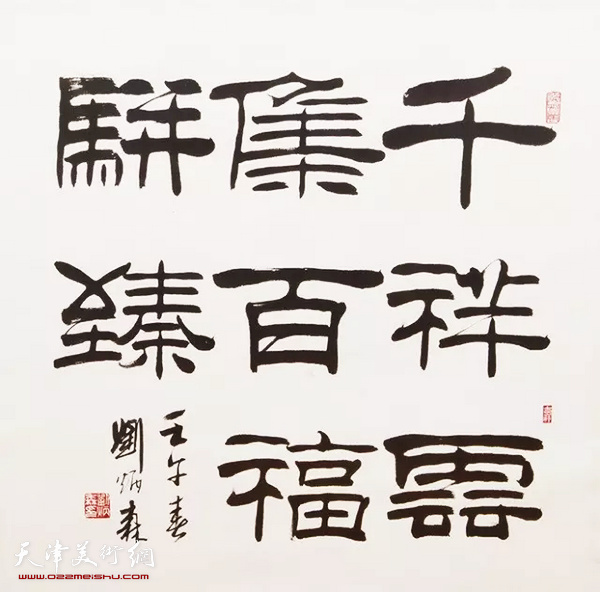 千祥雲
集百福
駢臻
壬午春
劉炳森
天津美術網
www.022meishu.com